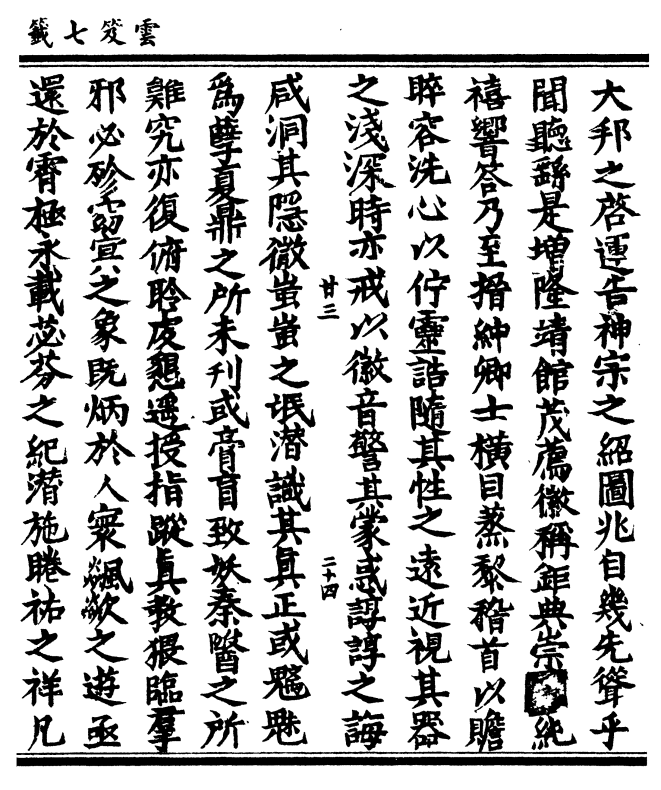 雲笈七籤
大邦之啓運告神宗之紹圖兆自幾先聳乎
聞聽繇是增隆靖館茂薦徽稱鉅典崇純
禧響答乃至搢紳卿士橫目蒸黎稽首以瞻
睟容洗心以佇靈誥隨其性之遠近視其器
之淺深時亦戒以徽音警其蒙惑諄諄之誨
咸洞其隱微蚩蚩之氓潛識其真正或魑魅
為孽夏鼎之所未刊或膏肓致妖秦醫之所
難究亦復俯聆虔懇遥授指蹤真教猥臨羣
邪必殄雩禜之象既炳於人寰飈歘之遊亟
還於霄極永載苾芬之紀潛施睠祐之祥凡
廿三
二十四